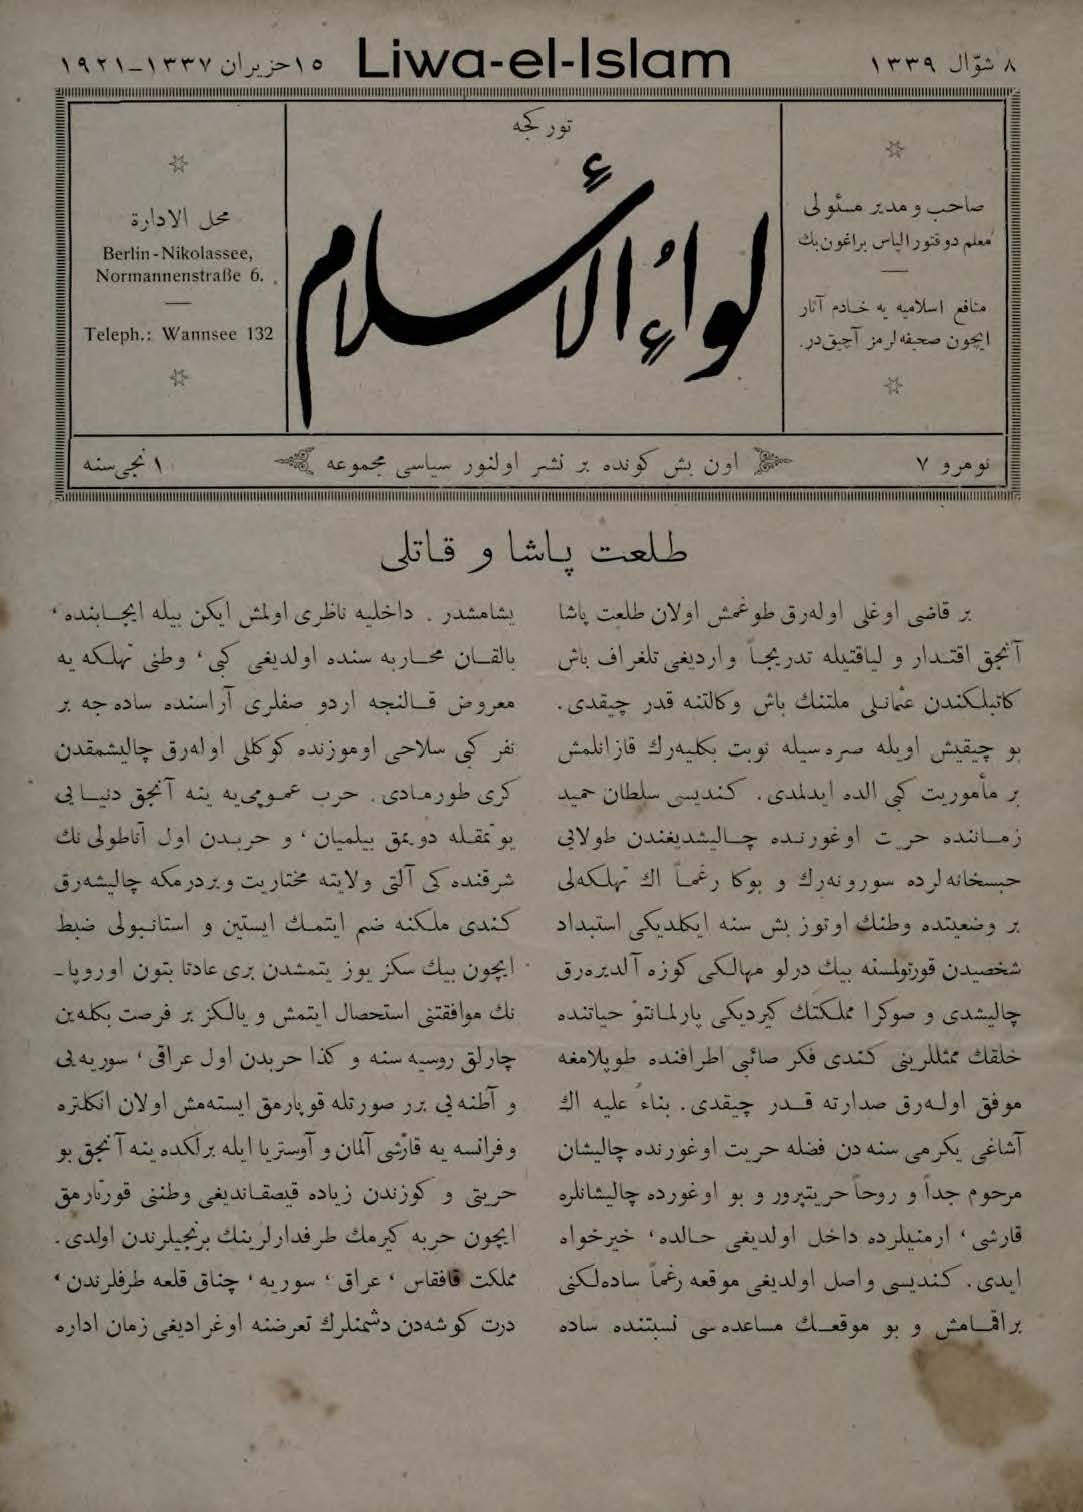 ٨ شوّال ١٣٣٩
Liwa-el-Islam
١٥ حزيران ١٣٣٧–١٩٢١
صاحب و مدير مسئولى
معلم دوقتور الياس براغون بك
منافع اسلاميه يه خادم آثار
ايچون صحيفه‌لرمز آچيق‌در.
توركجه
لواء الأسلام
محل الادارة
Berlin-Nikolassee,
Normannenstraße 6.
Teleph.: Wannsee 132
نومرو ٧
اون بش كونده بر نشر اولنور سياسى مجموعه
١ نجى سنه
طلعت پاشا و قاتلى
بر قاضى اوغلى اوله‌رق طوغمش اولان طلعت پاشا
آنجق اقتدار و لياقتيله تدريجاً وارديغى تلغراف باش
كاتبلكندن عثمانلى ملتنك باش وكالتنه قدر چيقدى.
بو چيقيش اويله صره‌سيله نوبت بكليه‌رك قازانلمش
بر مأموريت كبى الده ايدلمدى. كنديسى سلطان حميد
زماننده حريت اوغورنده چاليشديغندن طولايى
حبسخانه‌لرده سورونه‌رك و بوكا رغماً اك تهلكه‌لى
بر وضعيتده وطنك اوتوز بش سنه ايكلديكى استبداد
شخصيدن قورتولسنه بيك درلو مهالكى كوزه آلديره‌رق
چاليشدى و صوكرا مملكتك كيرديكى پارلمانتو حياتنده
خلقك ممثللرينى كندى فكر صائبى اطرافنده طوپلامغه
موفق اوله‌رق صدارته قدر چيقدى. بناءً عليه اك
آشاغى يكرمى سنه دن فضله حريت اوغورنده چاليشان
مرحوم جداً و روحاً حريتپرور و بو اوغورده چاليشانلره
قارشى، ارمنيلرده داخل اولديغى حالده، خيرخواه
ايدى. كنديسى واصل اولديغى موقعه رغماً ساده‌لكنى
براقمامش و بو موقعك مساعده‌سى نسبتنده ساده
يشامشدر. داخليه ناظرى اولمش ايكن بيله ايجابنده،
بالقان محاربه سنده اولديغى كبى، وطنى تهلكه يه
معروض قالنجه اردو صفلرى آراسنده ساده‌جه بر
نفر كبى سلاحى اوموزنده كوكللى اوله‌رق چاليشمقدن
كرى طورمادى. حرب عمومى‌يه ينه آنجق دنيايى
يوتمقله دويمق بيلميان، و حربدن اول آناطولى نك
شرقنده كى آلتى ولايته مختاريت ويردرمكه چاليشه‌رق
كندى ملكنه ضم ايتمك ايستين و استانبولى ضبط
ايچون بيك سكز يوز يتمشدن برى عادتا بتون اوروپا-
نك موافقتنى استحصال ايتمش و يالكز بر فرصت بكله‌ين
چارلق روسيه سنه و كذا حربدن اول عراقى، سوريه‌يى
و آطنه‌يى برر صورتله قوپارمق ايسته‌مش اولان انكلتره
و فرانسه يه قارشى آلمان و آوستريا ايله برلكده ينه آنجق بو
حريتى و كوزندن زياده قيصقانديغى وطننى قورتارمق
ايچون حربه كيرمك طرفدارلرينك برنجيلرندن اولدى.
مملكت قافقاس، عراق، سوريه، چناق قلعه طرفلرندن،
درت كوشه‌دن دشمنلرك تعرضنه اوغراديغى زمان اداره